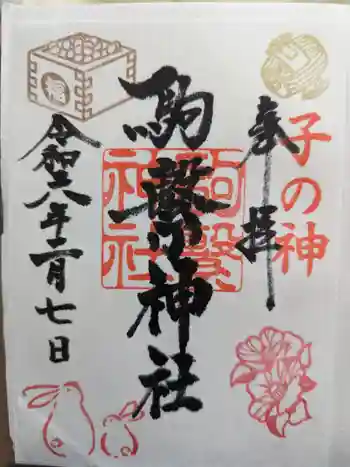 子の神
奉拝
駒繋神社
駒繋
神社
令和六年二月七日
福